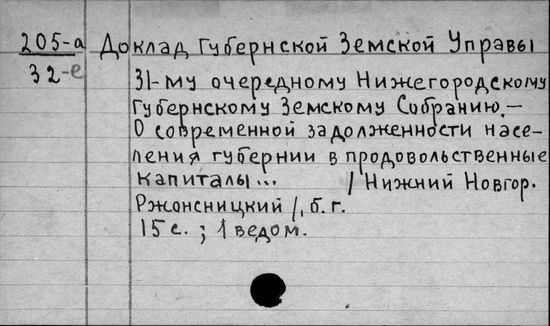 205-а Доклад Губернской Земской Управы
32-е 31-му очередному Нижегородскому
Губернскому Земскому Собранию.—
О современной задолженности насе-
ления губернии в продовольственные
капиталы... / Нижний Новгор.
Ржонсницкий /, б. г.
15 с. ; 1 ведом.